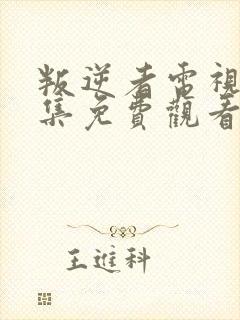 叛逆者電視
集免費觀看
王進科